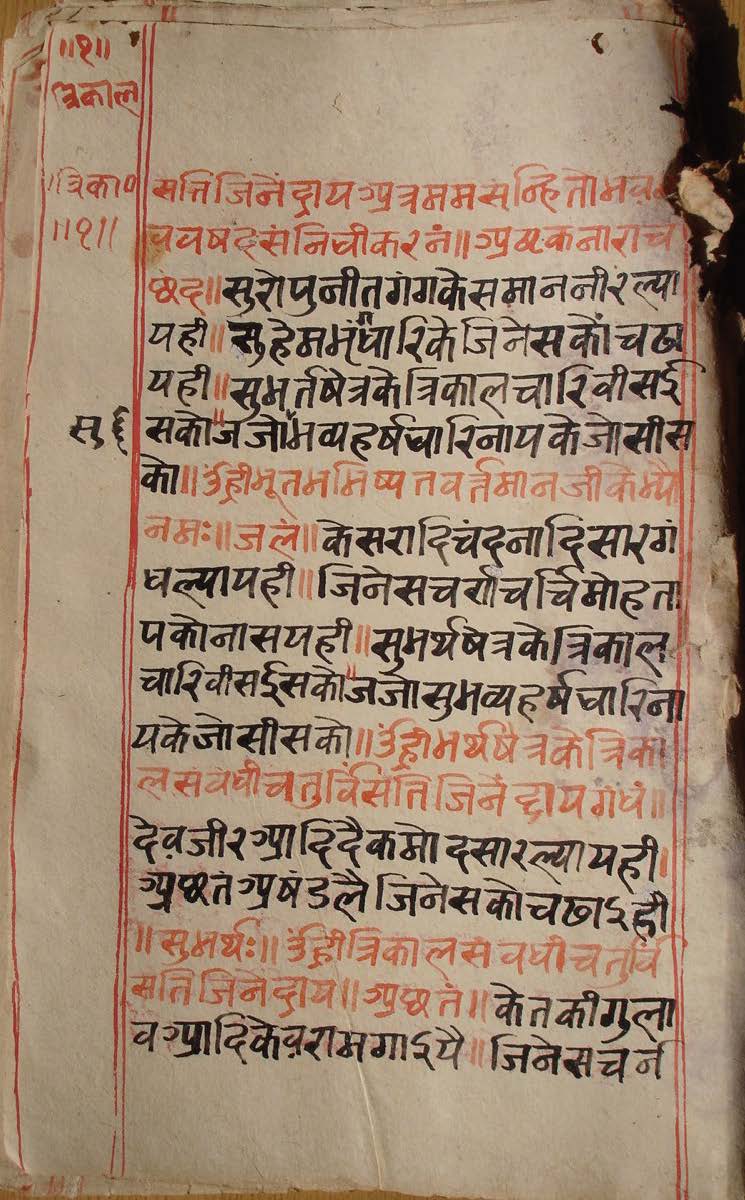 ॥१॥
त्रिकाल
।त्रिका०
॥१॥
सतिजिनेंद्राय अत्रममसन्हितोभव
ववषटसंनिधीकरनं॥ अथकनाराच
छंद॥ सुरोपुनीतगंगकेसमाननीरल्या
यही॥ सुहेमभृंघारिकेजिनेसकौंचढा
यही॥ सुभर्तषेत्रकेत्रिकालचारिवीसई
सु
सकोजजोभव्यहर्षधारिनायकेजोसीस
को॥ उंह्रीभूतभमिष्यतवर्तमानजीकेभ्यो
नमः॥ जलं॥ केसरादिचंदनादिसारगं
धल्यायही॥ जिनेसचर्णचर्चिमोहता
पकोनासयही॥ सुभर्थषेत्रकेत्रिकाल
चारिवीसईसकोजजोसुभव्यहर्षधारिना
यकेजोसीसको॥ उंह्रीभर्थषेत्रकेत्रिका
लसंवधीचतुर्विंसतिजिनेंद्रायगंधं॥
देवजीरआदिदैकमोदसारल्यायही।
अछतंअषंडलैजिनेसकोचढाऽही
॥ सुभर्थः॥ उंह्रीत्रिकालसंवधीचतुर्वि
सतिजिनेंद्राय॥ अछतं॥ केतकीगुला
वआदिकेवरामगाऽयै॥ जिनेसचर्न